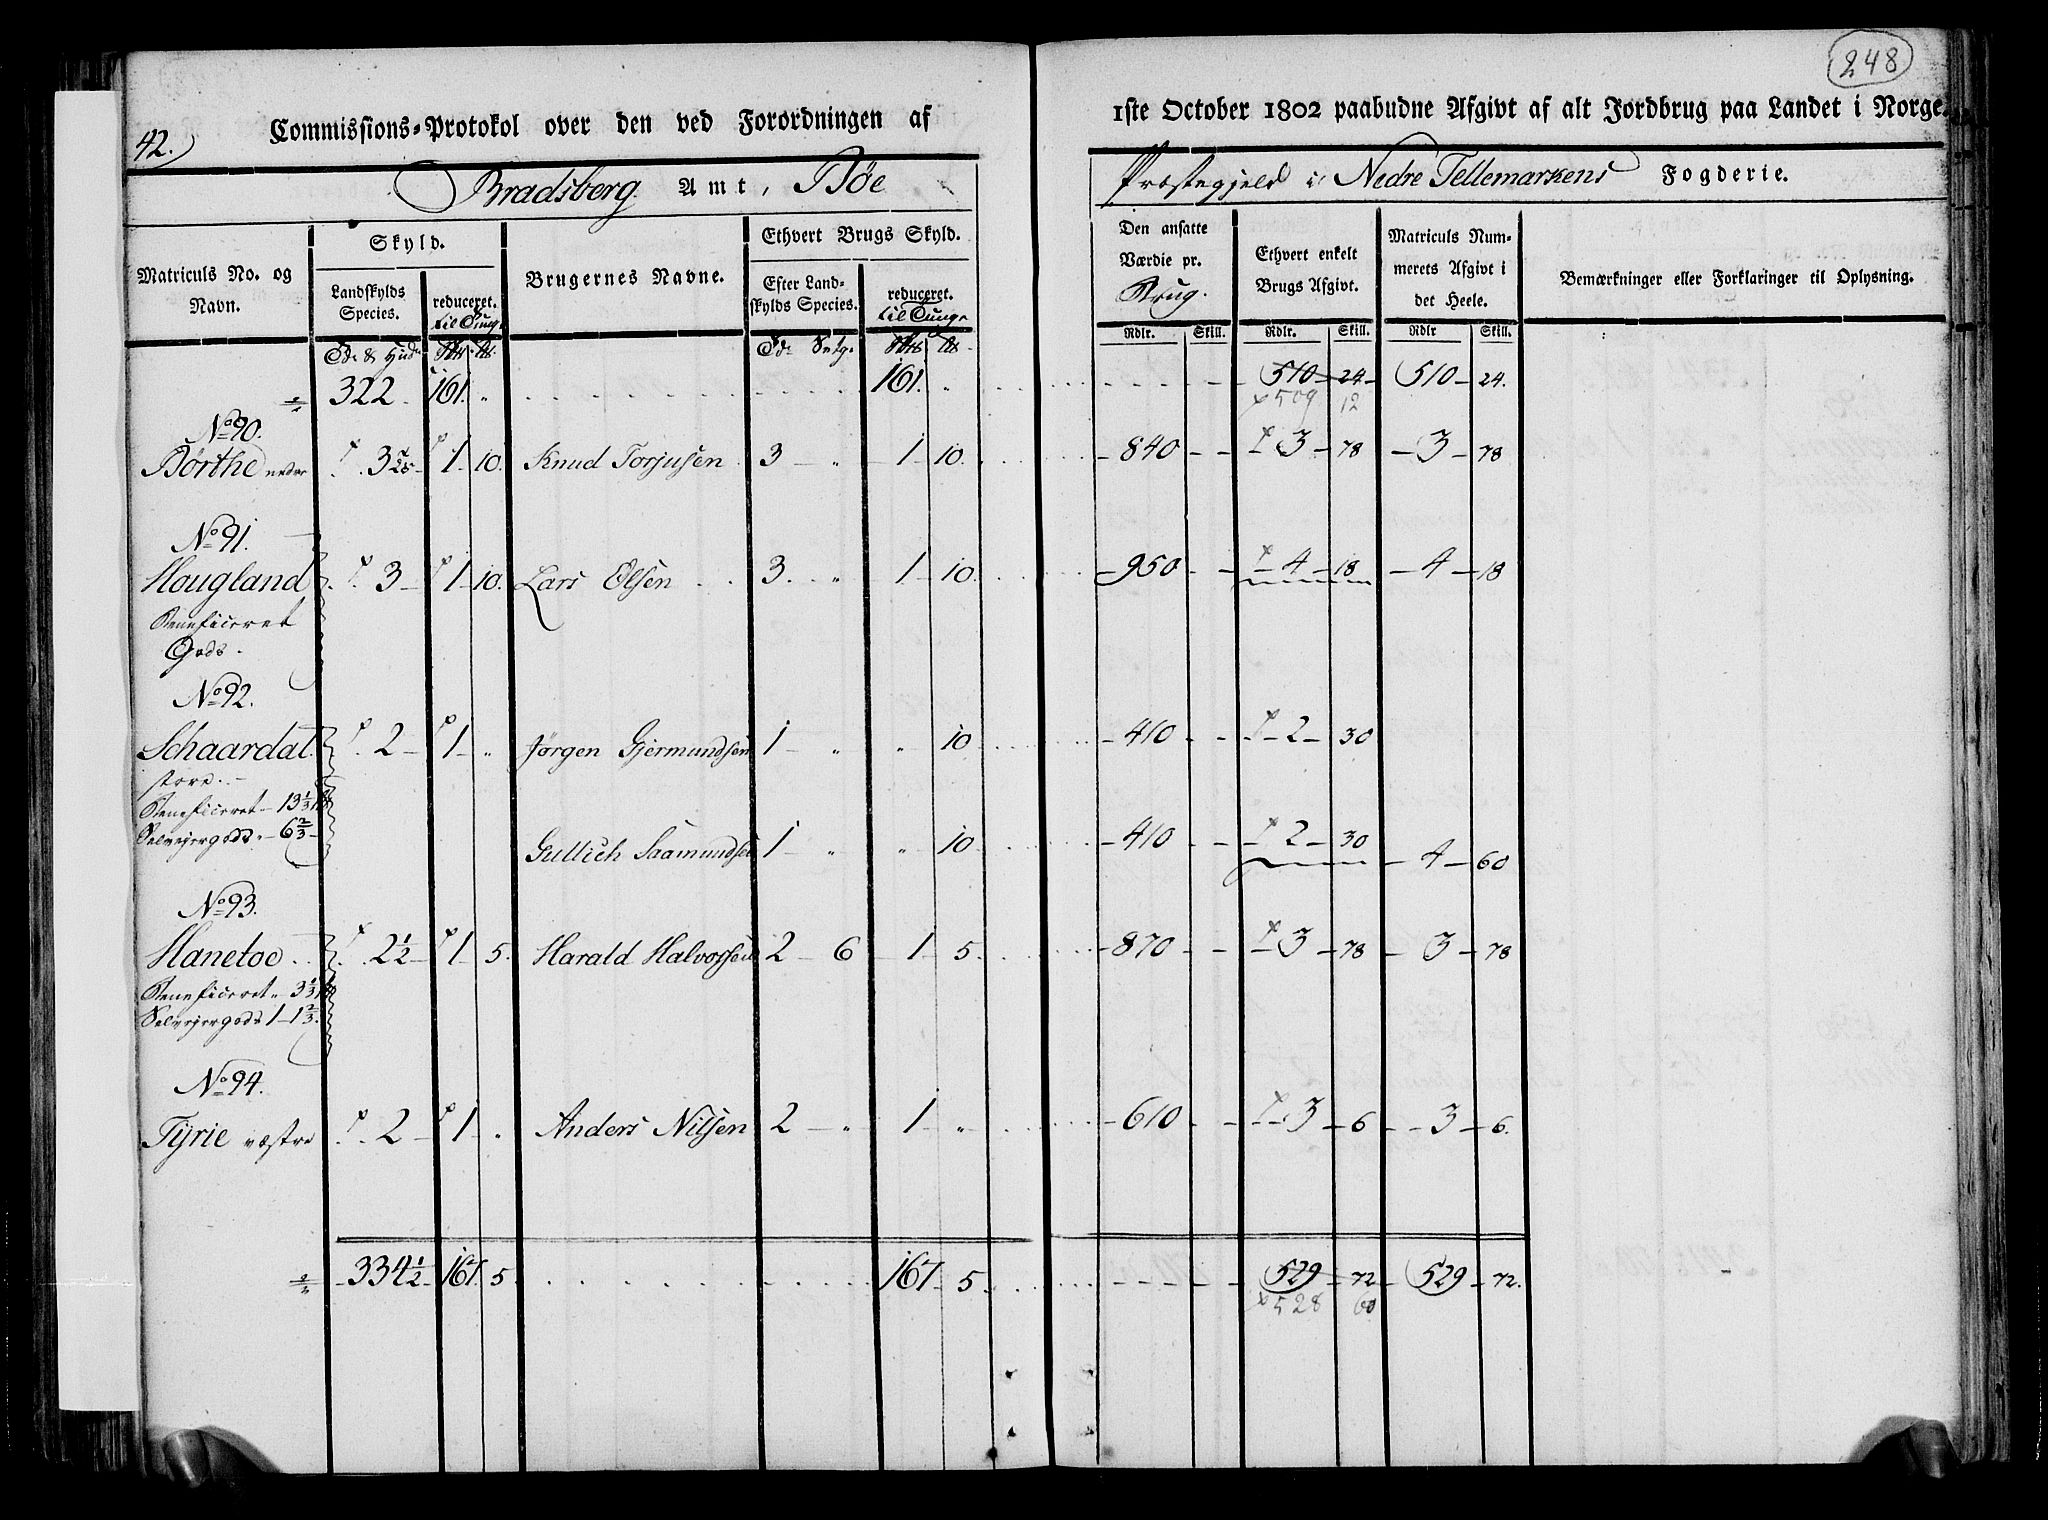 248
42.)
Commissions-Protokol over den ved Forordningen af 1ste October 1802 paabudne Afgivt af alt Jordbrug paa Landet i Norge.
Bradsberg Amt, Bøe Præstegjeld i Nedre Tellemarkens Fogderie.
Matriculs No. og Navn.
Skyld.
Landskylds Species.
reduceret. til Tunge
Brugernes Navne.
Ethvert Brugs Skyld.
Efter Landskylds Species.
reduceret. til Tunge
Den ansatte Værdie pr. Brug.
Ethvert enkelt Brugs Afgivt.
Matriculs Nummerets Afgivt i det Heele.
Bemærkninger eller Forklaringer til Oplysning.
Rdlr. Skill. Rdlr. Skill. Rdlr Skill.
322 161 " 161 " 510 24 510 24.
509 12
No 90.
Børthe nedre 3 1 10. Knud Torjusen 3 " 1 10. 840 3 78 3 78
No 91.
Hougland 3 1 10. Lars Olsen 3 " 1 10. 950 4 18 4 18
Beneficeret
Gods.
No 92.
Schaardal 2 1 " Jørgen Gjermundsen 1 " " 10 410 2 30
store
Beneficeret 13 1/3
Selvejergods 6 2/3
Gullich Saamundsen 1 " " 10 410 2 30 4 60
No 93.
Hanetoe 2 1/2 1 5. Harald Halvorsen 2 6 1 5 870 3 78 3 78
Beneficeret 3 1/3
Selvejergods 1 1 2/3
No 94.
Tyrie vestre 2 1 " Anders Nilsen 2 " 1 " 610 3 6 3 6.
334 1/2 167 5 167 5 529 72 529 72.
528 60